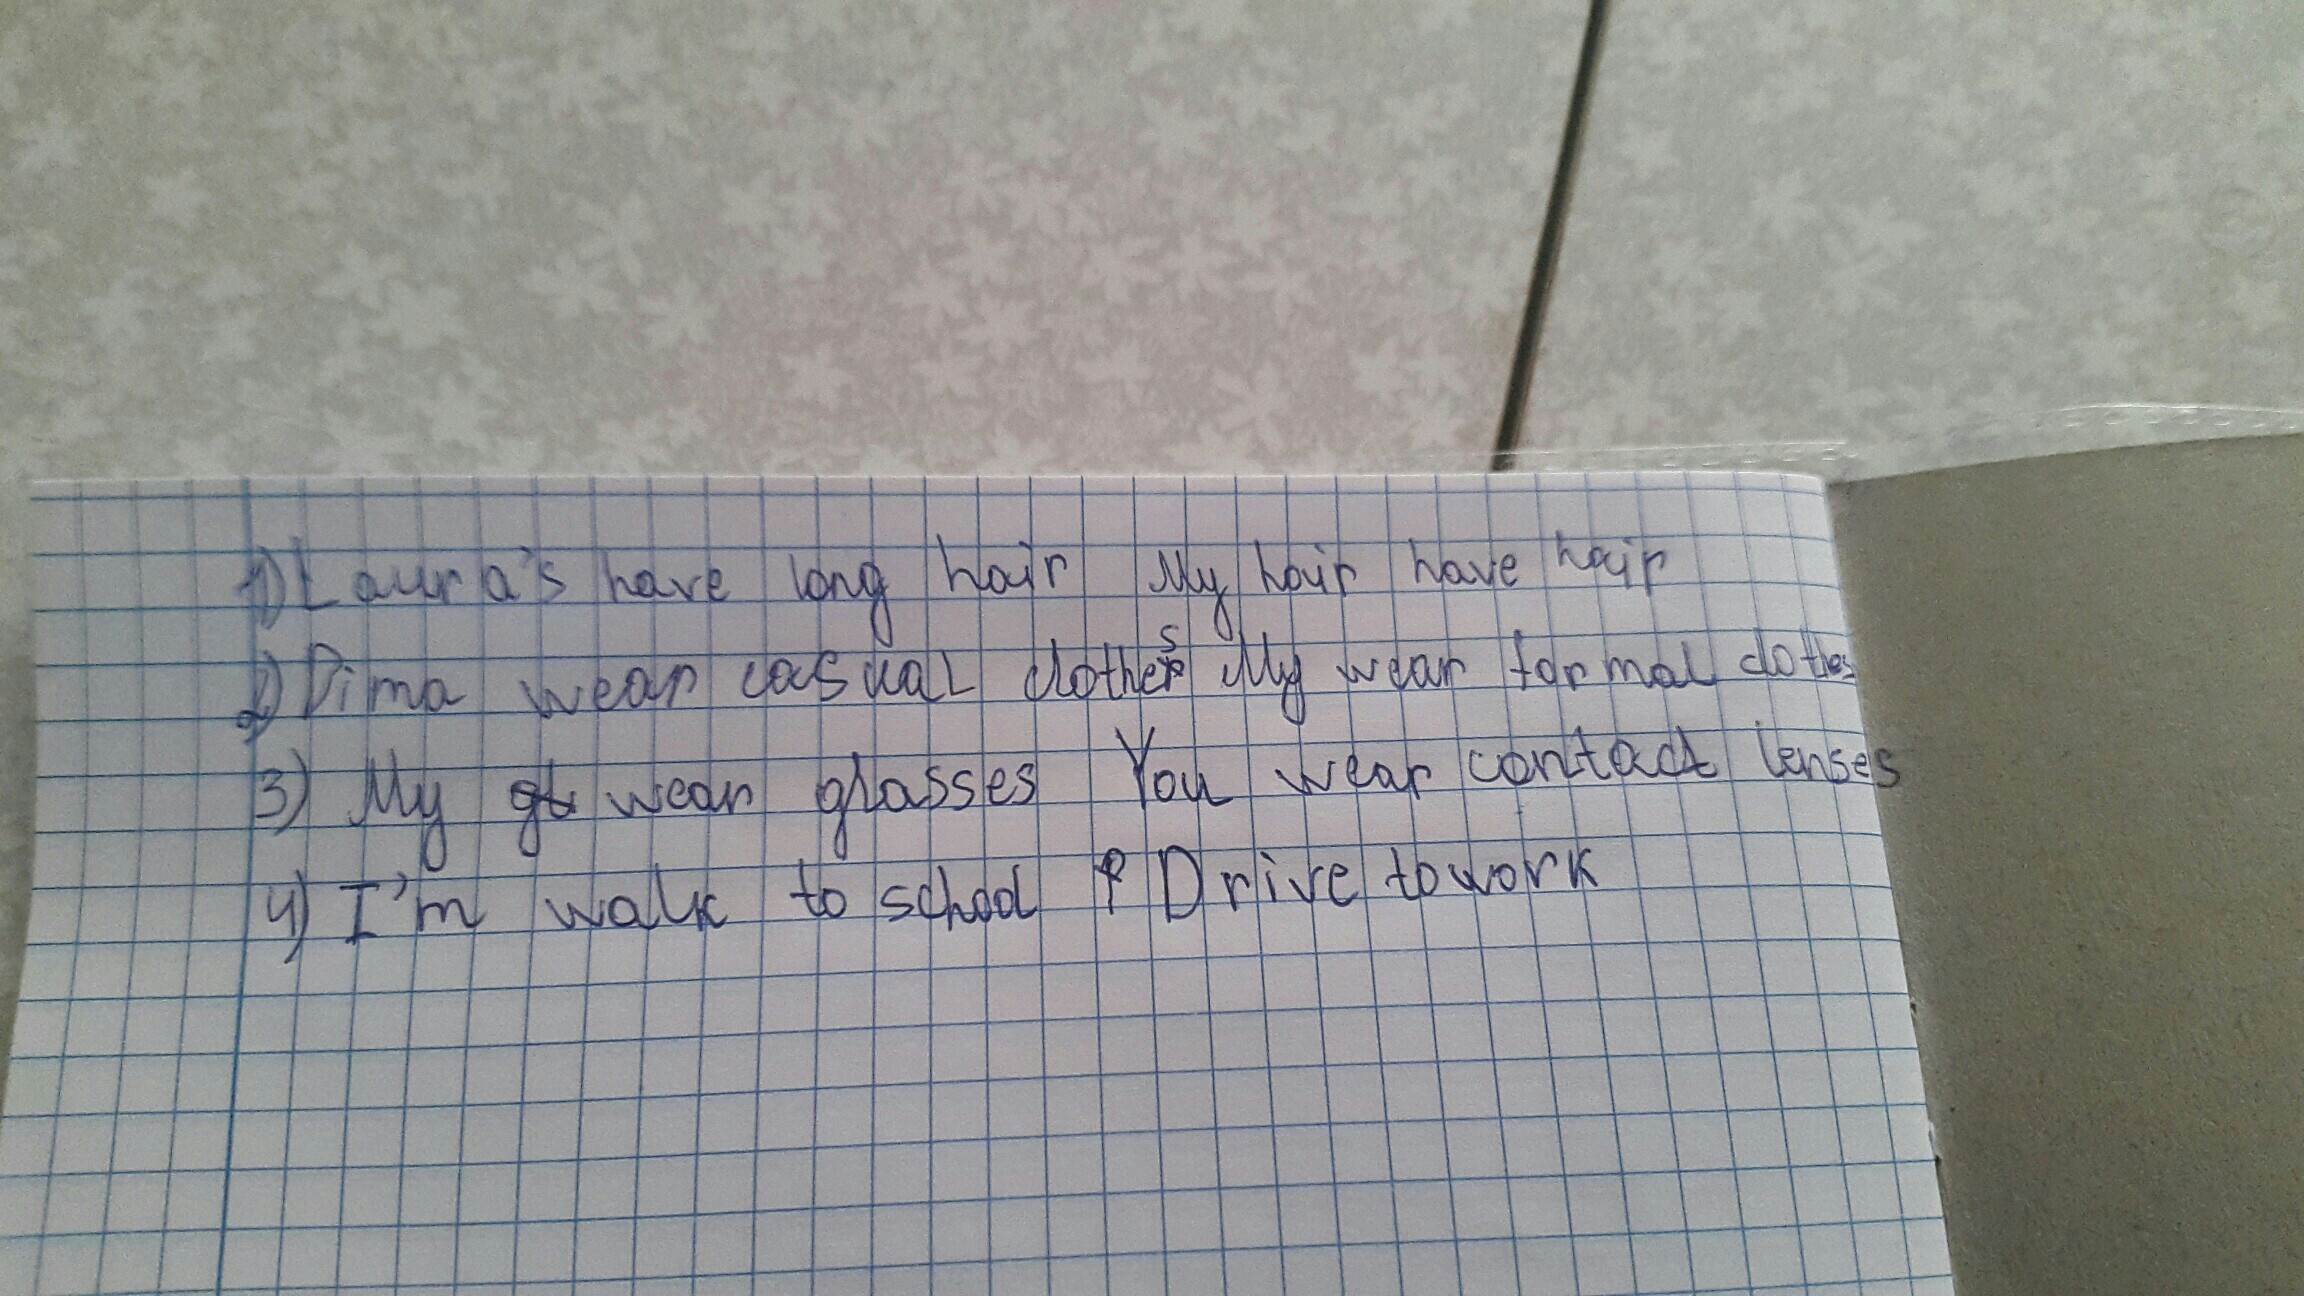 1) Laura's have long hair My hair have hair
2) Dima wear casual clothes My wear formal clothes
3) My wear glasses You wear contact lenses
4) I'm walk to school Drive to work